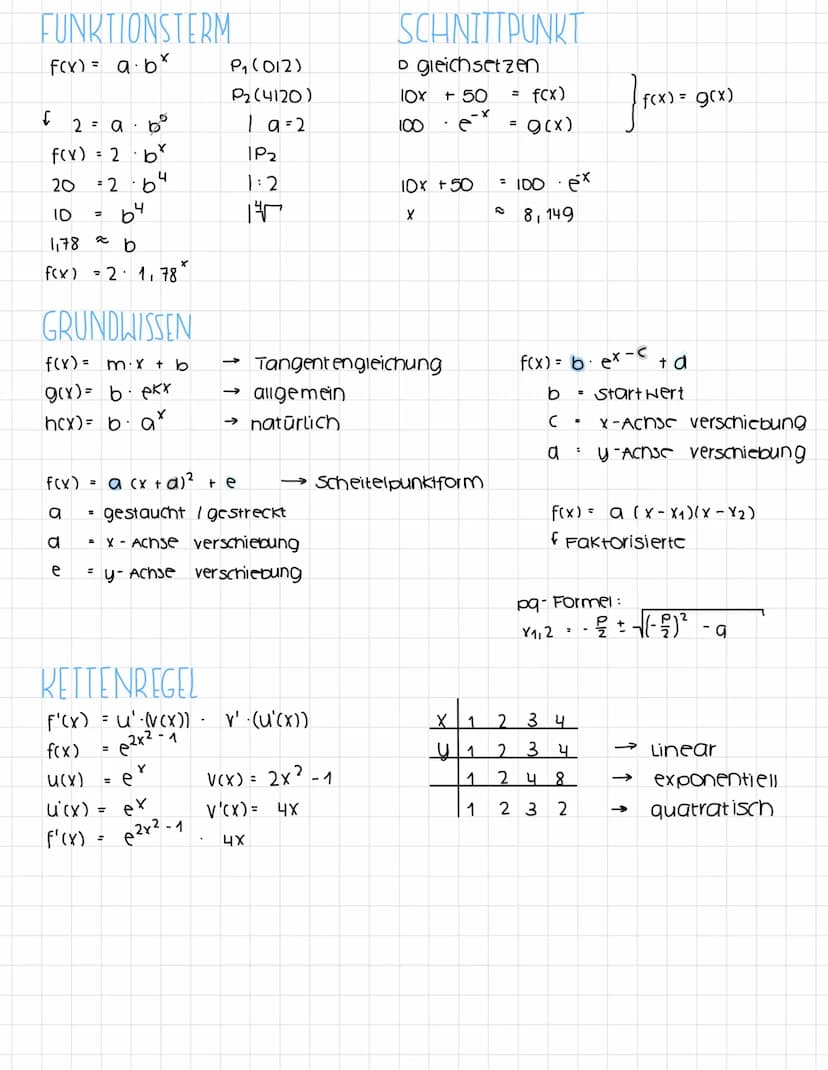 FUNKTIONSTERM
f(x) = a · b^x P₁(0|2)
P₂(4|20)
2 = a · b⁰ | a = 2
f(x) = 2 · b^x | P₂
20 = 2 · b⁴ | : 2
10 = b⁴ | ⁴√
1,78 ≈ b
f(x) = 2 · 1,78^x
SCHNITTPUNKT
gleichsetzen
10x + 50 = f(x)
100 · e^-x = g(x) } f(x) = g(x)
10x + 50 = 100 · e^-x
x ≈ 8,149
GRUNDWISSEN
f(x) = m·x + b → Tangentengleichung
g(x) = b · e^kx → allgemein
h(x) = b · a^x → natürlich
f(x) = b · e^x-c + d
b = Startwert
c = x-Achse verschiebung
d = y-Achse verschiebung
f(x) = a (x + d)² + e → Scheitelpunktform
a = gestaucht / gestreckt
d = x-Achse verschiebung
e = y-Achse verschiebung
f(x) = a (x - x₁)(x - x₂)
Faktorisierte
pq-Formel:
x₁,₂ = - p/2 ± √(-p/2)² - q
KETTENREGEL
f'(x) = u'·(v(x)) · v'·(u'(x))
f(x) = e^2x²-1
u(x) = e^x v(x) = 2x² - 1
u'(x) = e^x v'(x) = 4x
f'(x) = e^2x²-1 · 4x
x | 1 2 3 4
y | 1 2 3 4 → linear
1 2 4 8 → exponentiell
1 2 3 2 → quatratisch